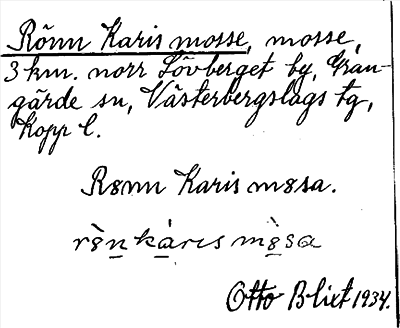 Rönn Karis mosse, mosse,
3 km. norr Lövberget by, Gran-
gärde sn, Västerbergslags tg,
Kopp l.
Rønn Karis møsa.
rø̀n káris mø̀sa
Otto Blixt 1934.